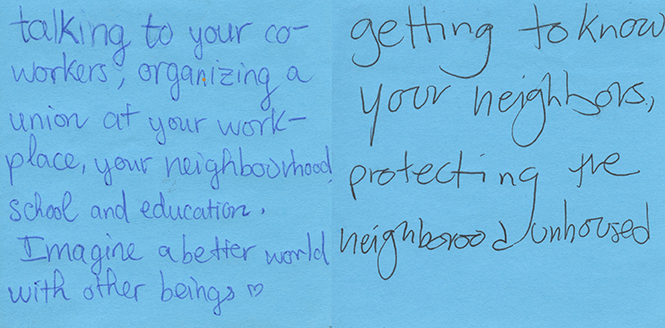 talking to your co-
workers, organizing a
union at your work-
place, your neighbourhood,
school and education.
Imagine a better world
with other beings ♡
getting to know
your neighbors,
protecting the
neighborood unhoused